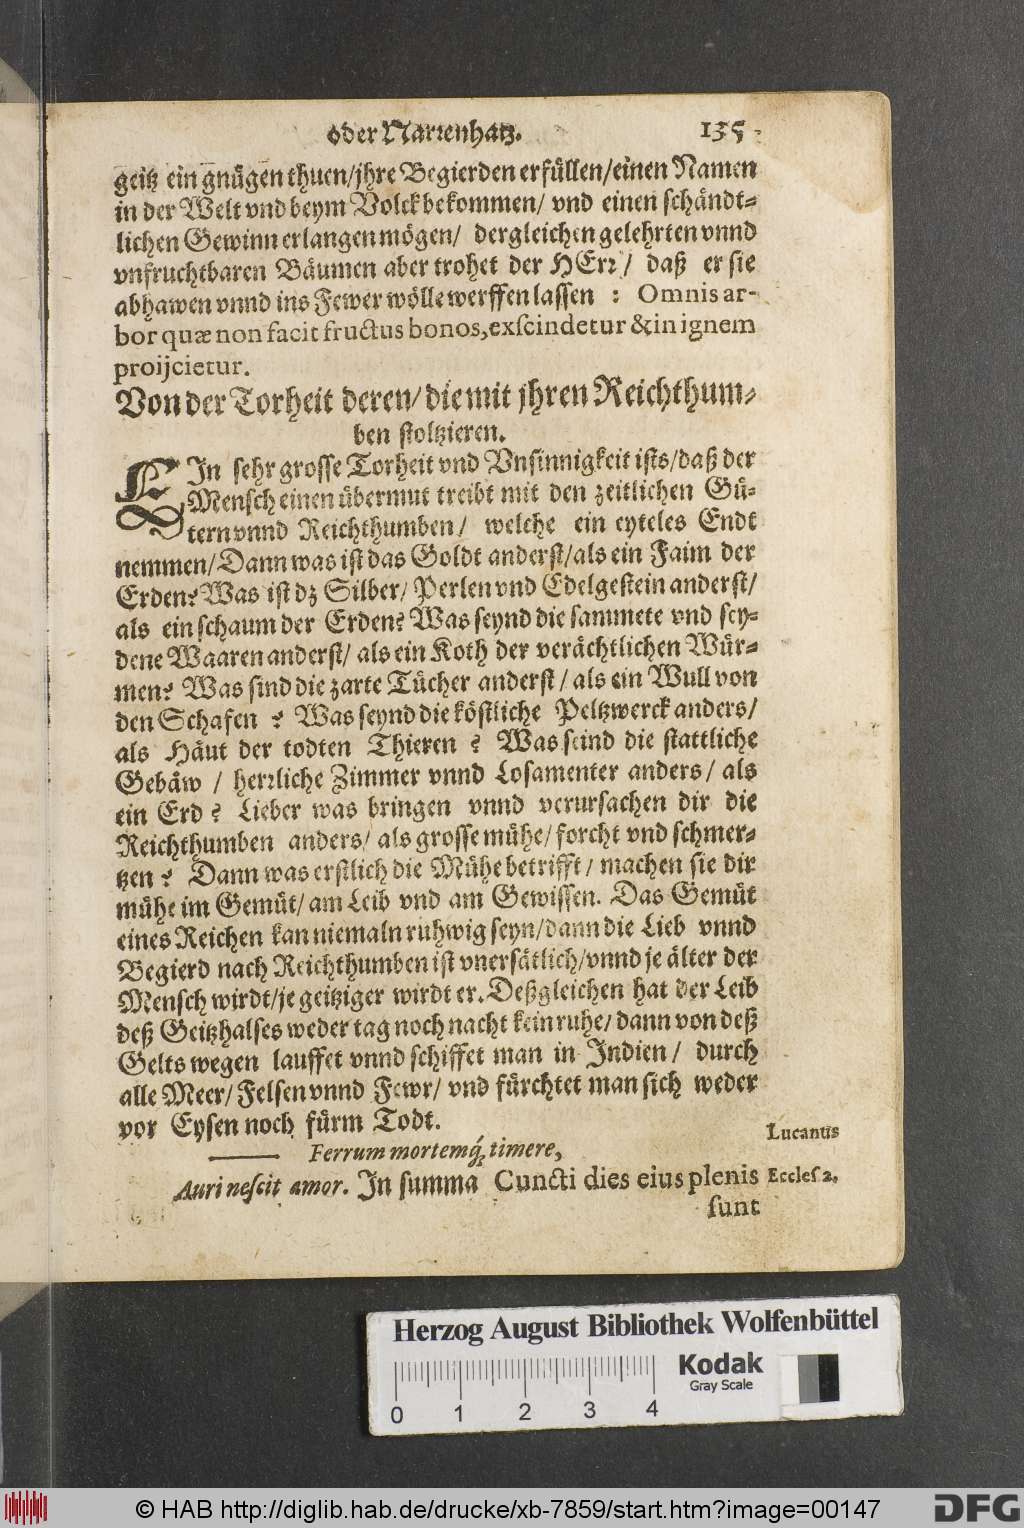 oder Narrenhatz. 135
geitz ein gnügen thuen/jhre Begierden erfüllen/einen Namen
in der Welt vnd beym Volck bekommen/ vnd einen schändt-
lichen Gewinn erlangen mögen/ dergleichen gelehrten vnnd
vnfruchtbaren Bäumen aber trohet der HErr/ daß er sie
abhawen vnnd ins Fewer wölle werffen lassen : Omnis ar-
bor quæ non facit fructus bonos, exscindetur & in ignem
proijcietur.
Von der Torheit deren/die mit jhren Reichthum-
ben stoltzieren.
EIn sehr grosse Torheit vnd Vnsinnigkeit ists/daß der
Mensch einen übermut treibt mit den zeitlichen Gü-
tern vnnd Reichthumben/ welche ein eyteles Endt
nemmen/Dann was ist das Goldt anderst/als ein Faim der
Erden? Was ist dz Silber/ Perlen vnd Edelgestein anderst/
als ein schaum der Erden? Was seynd die sammete vnd sey-
dene Waaren anderst/ als ein Koth der verächtlichen Wür-
men? Was sind die zarte Tücher anderst/ als ein Wull von
den Schafen ? Was seynd die köstliche Peltzwerck anders/
als Häut der todten Thieren ? Was seind die stattliche
Gebäw / herrliche Zimmer vnnd Losamenter anders/ als
ein Erd? Lieber was bringen vnnd verursachen dir die
Reichthumben anders/ als grosse mühe/ forcht vnd schmer-
tzen ? Dann was erstlich die Mühe betrifft/ machen sie dir
mühe im Gemüt/ am Leib vnd am Gewissen. Das Gemüt
eines Reichen kan niemaln ruhwig seyn/dann die Lieb vnnd
Begierd nach Reichthumben ist vnersätlich/vnnd je älter der
Mensch wirdt/je geitziger wirdt er. Deßgleichen hat der Leib
deß Geitzhalses weder tag noch nacht kein ruhe/ dann von deß
Gelts wegen lauffet vnnd schiffet man in Indien/ durch
alle Meer/ Felsen vnnd Fewr/ vnd fürchtet man sich weder
vor Eysen noch fürm Todt.
Lucanus
Ferrum mortemq́; timere,
Auri nescit amor. In summa Cuncti dies eius plenis
Eccles 2.
sunt
Herzog August Bibliothek Wolfenbüttel
Kodak
Gray Scale
0 1 2 3 4
© HAB http://diglib.hab.de/drucke/xb-7859/start.htm?image=00147
DFG